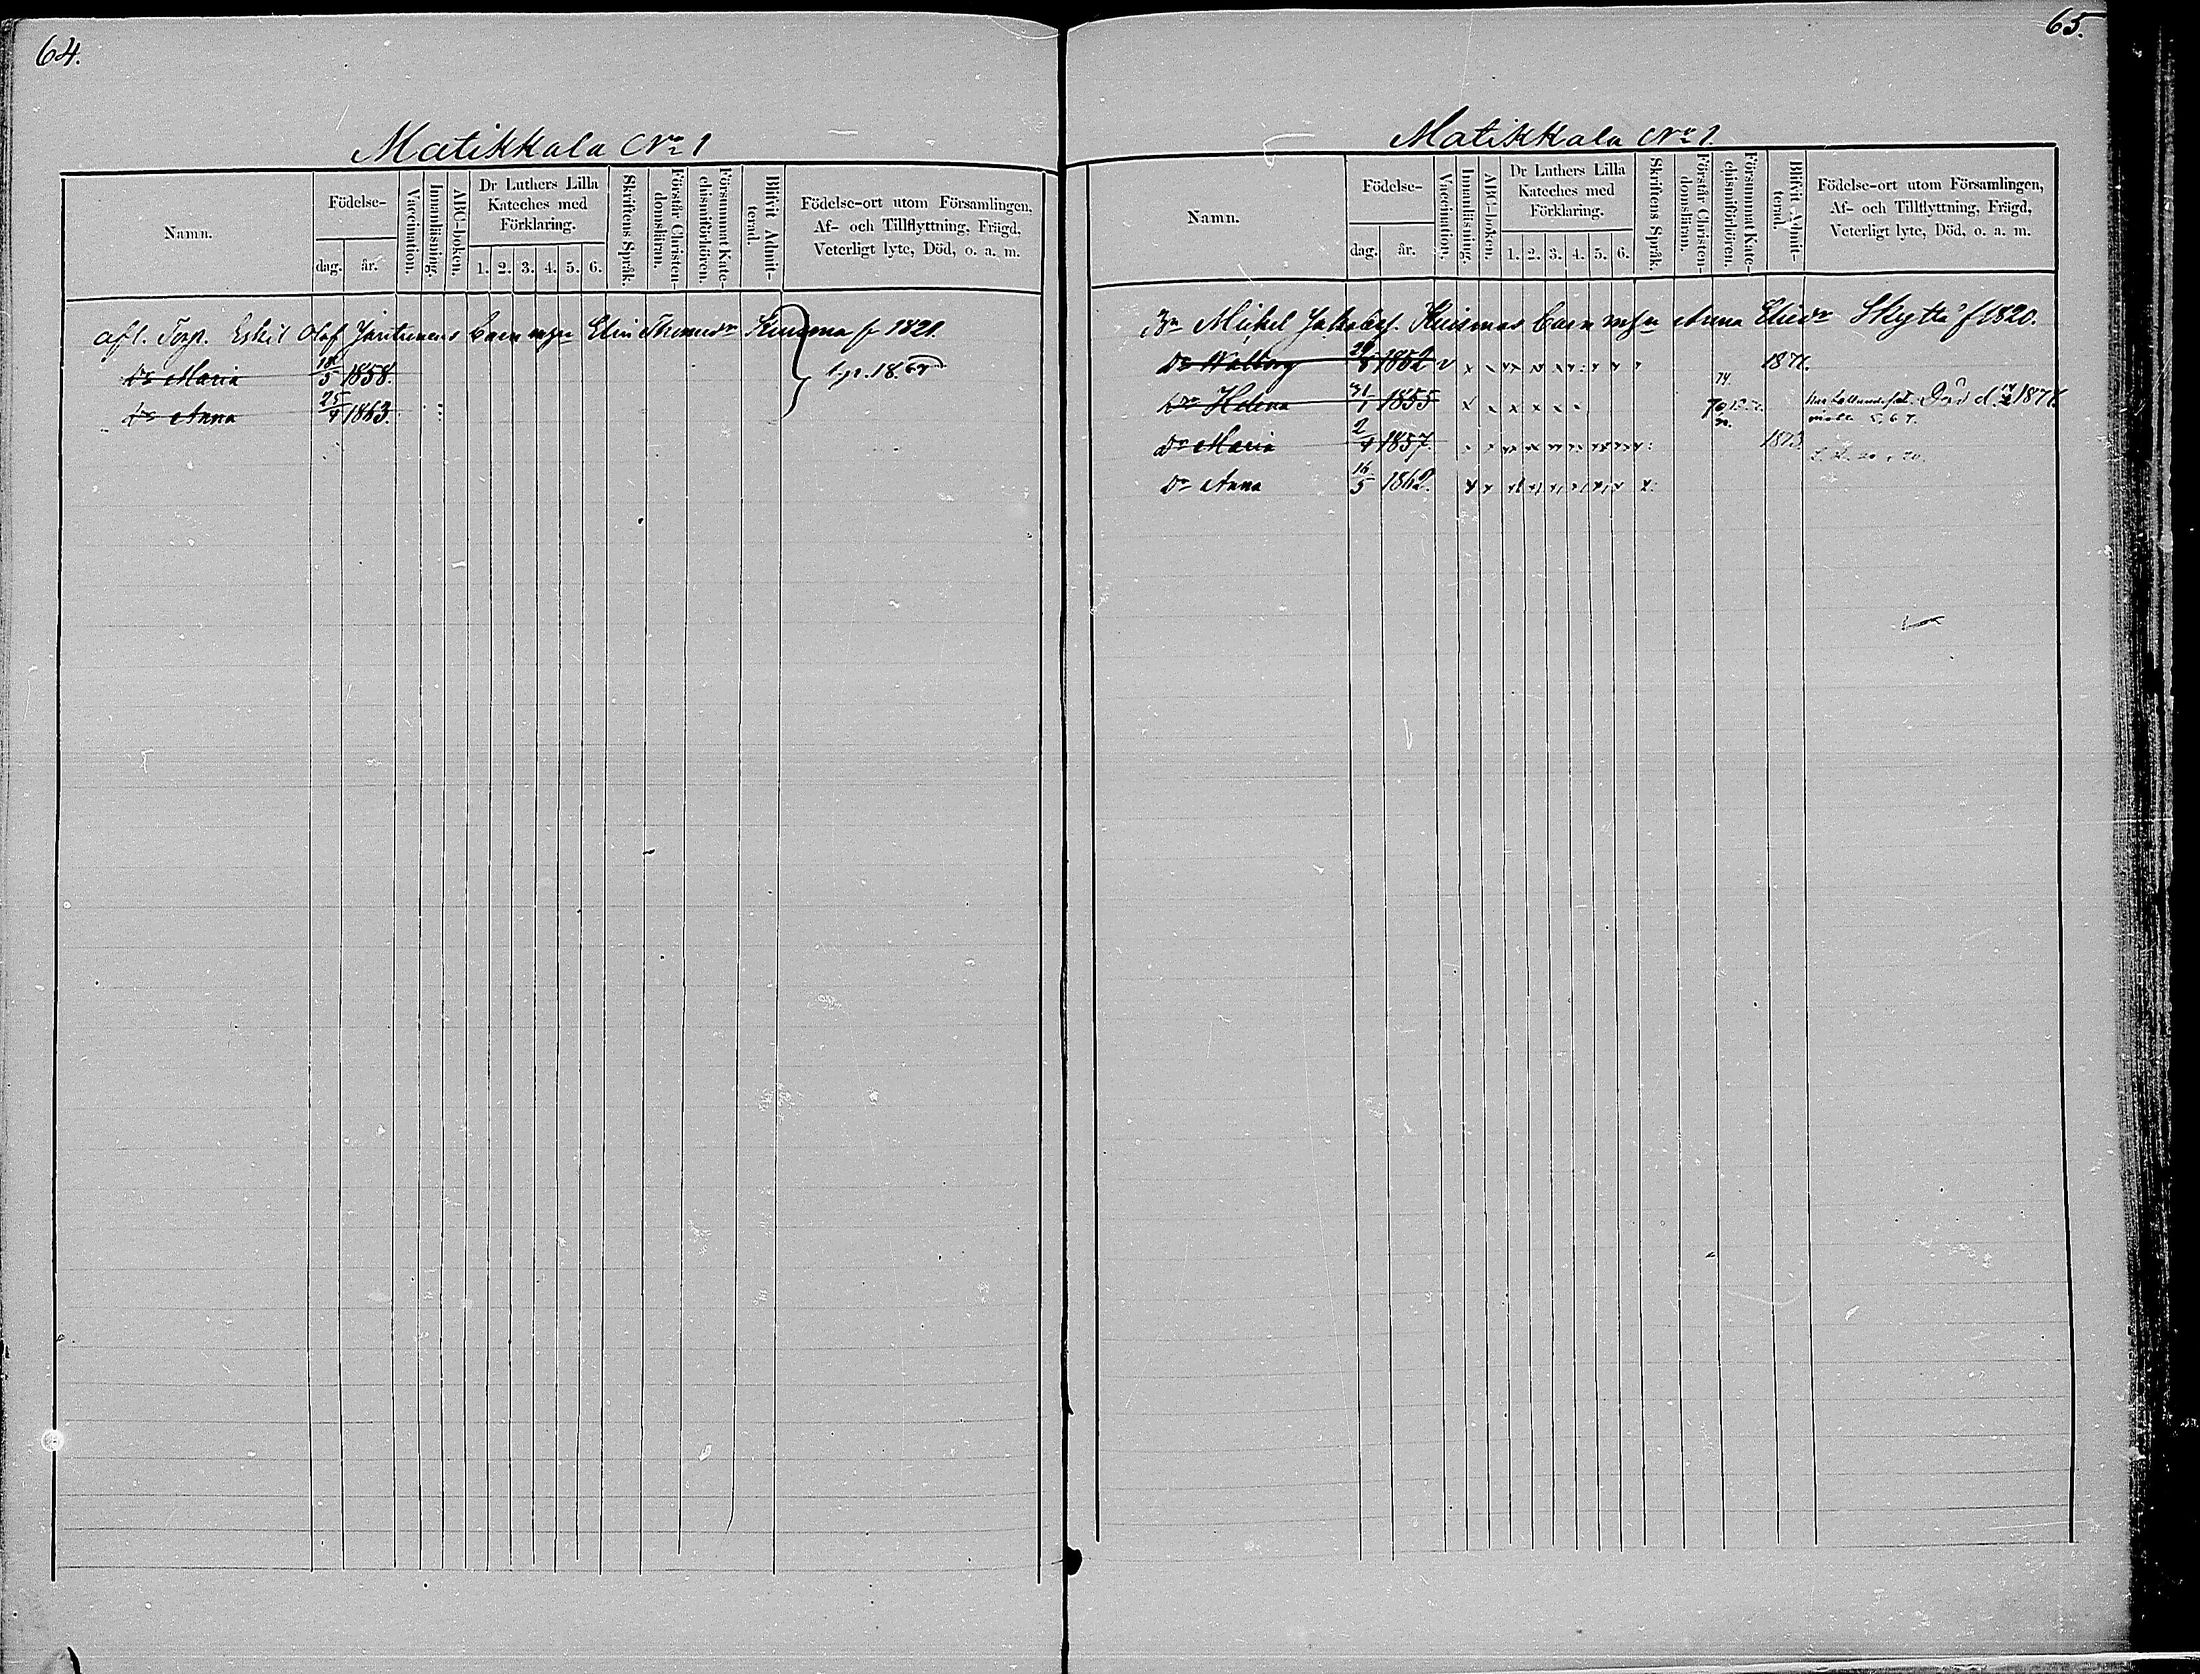 64.
Matikkala No 1
Namn.
Födelse-
dag.
år.
Vaccination.
Innanläsning.
ABC-boken.
Dr Luthers Lilla
Kateches med
Förklaring.
1. 2. 3. 4. 5. 6.
Skriftens Språk.
Förstår Christen-
domsläran.
Försummat Kate-
chismiförhören.
Blifvit Admit-
terad.
Födelse-ort utom Församlingen,
Af- och Tillflyttning, Frägd,
Veterligt lyte, Död, o. a. m.
afl. Torp. Eskil Olof Jantunens barn m hu Elin Thomasdr Kuisma f 1821.
Dr Maria 18/5 1858.
Dr Anna 25/4 1863.
65.
Matikkala No 1.
Namn.
Födelse-
dag.
år.
Vaccination.
Innanläsning.
ABC-boken.
Dr Luthers Lilla
Kateches med
Förklaring.
1. 2. 3. 4. 5. 6.
Skriftens Språk.
Förstår Christen-
domsläran.
Försummat Kate-
chismiförhören.
Blifvit Admit-
terad.
Födelse-ort utom Församlingen,
Af- och Tillflyttning, Frägd,
Veterligt lyte, Död, o. a. m.
Michel Kuismas barn Anna Skyttä f 1820.
Dr Walborg 1852 1871.
Dr Helena 1855 Död d. 1871.
Dr Maria 2/4 1857. 1873
Dr Anna 16/5 1862.